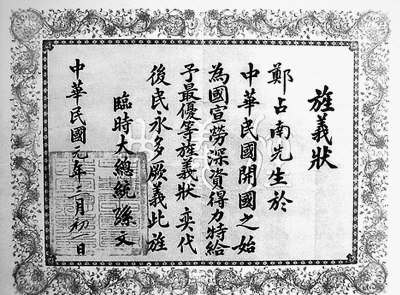 旌義狀
鄭占南先生於
中華民國開國之始
為國宣勞深資得力特給
予最優等旌義狀奕代
後民永多厥義此旌
臨時大總統孫文
中華民國元年二月初一日